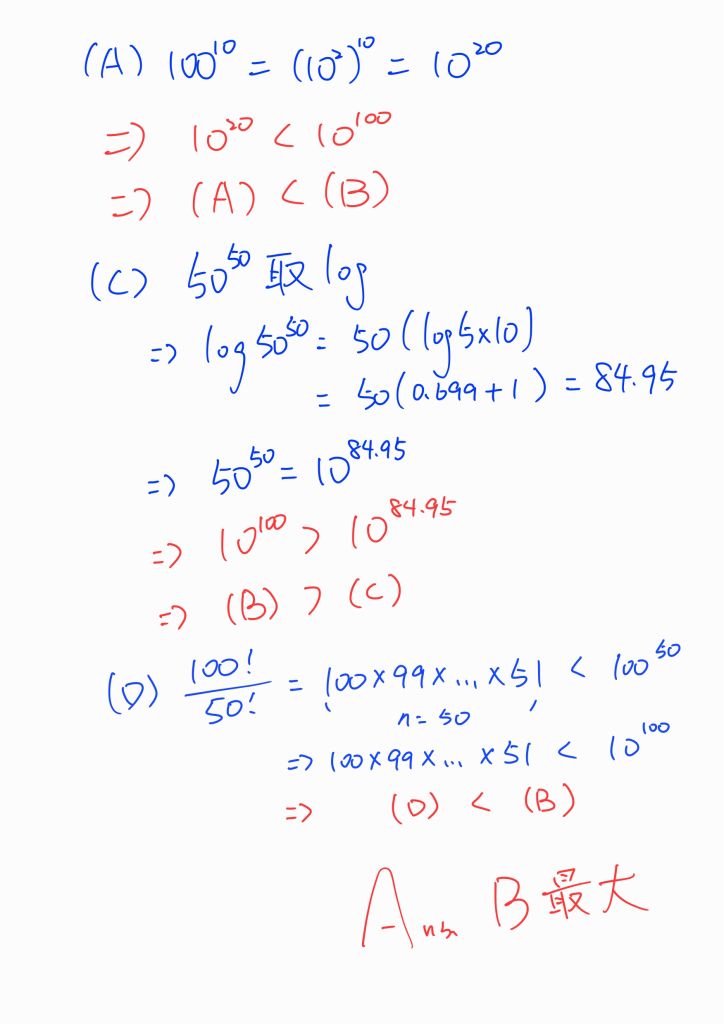 (A) 100¹⁰ = (10²)¹⁰ = 10²⁰
⇒ 10²⁰ < 10¹⁰⁰
⇒ (A) < (B)
(C) 50⁵⁰ 取 log
⇒ log 50⁵⁰ = 50 (log 5×10)
= 50 (0.699 + 1) = 84.95
⇒ 50⁵⁰ = 10^84.95
⇒ 10¹⁰⁰ > 10^84.95
⇒ (B) > (C)
(D) 100!/50! = 100×99×...×51 < 100⁵⁰
n = 50
⇒ 100×99×...×51 < 10¹⁰⁰
⇒ (D) < (B)
Ans B 最大